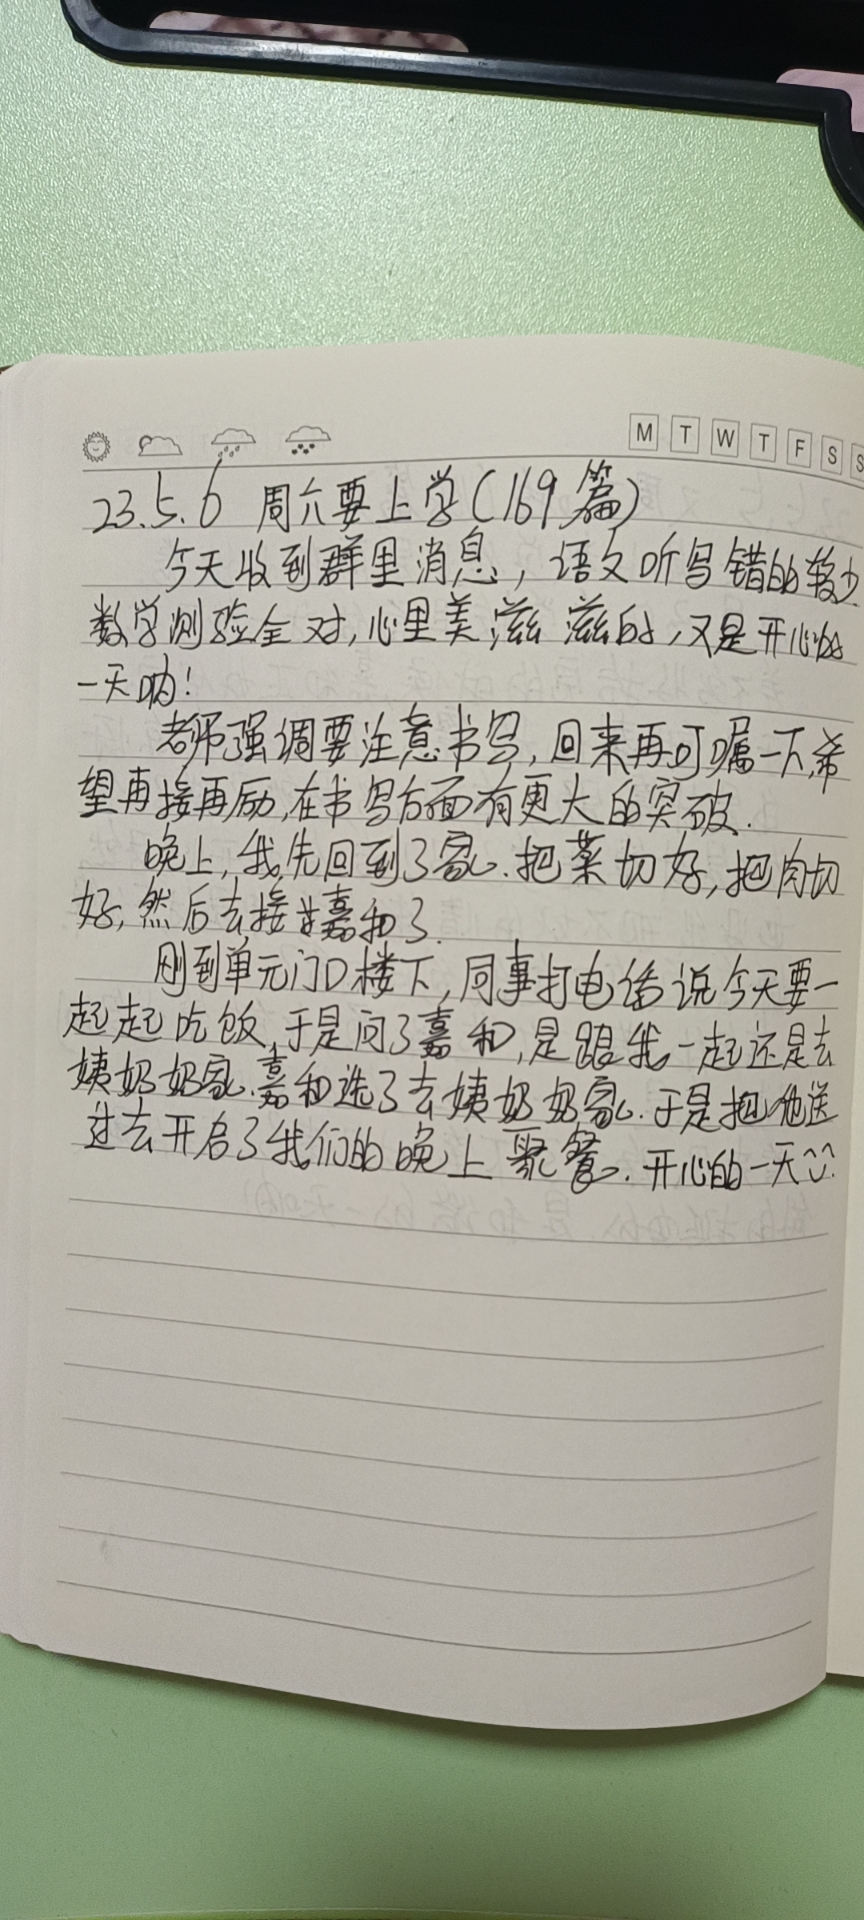 M T W T F S S
23.5.6 周六要上学(169篇)
今天收到群里消息,语文听写错的较少
数学测验全对,心里美滋滋的,又是开心的
一天呐!
老师强调要注意书写,回来再叮嘱一下,希
望再接再励,在书写方面有更大的突破.
晚上,我先回到了家.把菜切好,把肉切
好,然后去接嘉和了.
刚到单元门口楼下,同事打电话说今天要一
起起吃饭,于是问了嘉和,是跟我一起还是去
姨奶奶家.嘉和选了去姨奶奶家.于是把他送
过去开启了我们的晚上聚餐.开心的一天